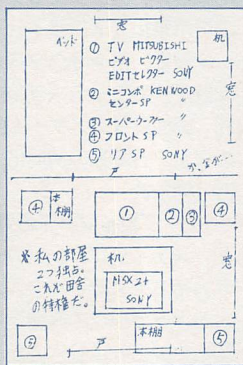 窓
ベット
机
① TV MITSUBISHI
ビデオ ビクター
EDITセレクター SONY
② ミニコンポ KENWOOD
センターSP 〃
③ スーパーウーファー 〃
④ フロントSP 〃
⑤ リアSP SONY
窓
戸
が、金が…
④
本棚
①
②
③
④
※私の部屋
2つ独占。
これぞ田舎
の特権だ。
机
MSX2+
SONY
窓
⑤
戸
本棚
⑤